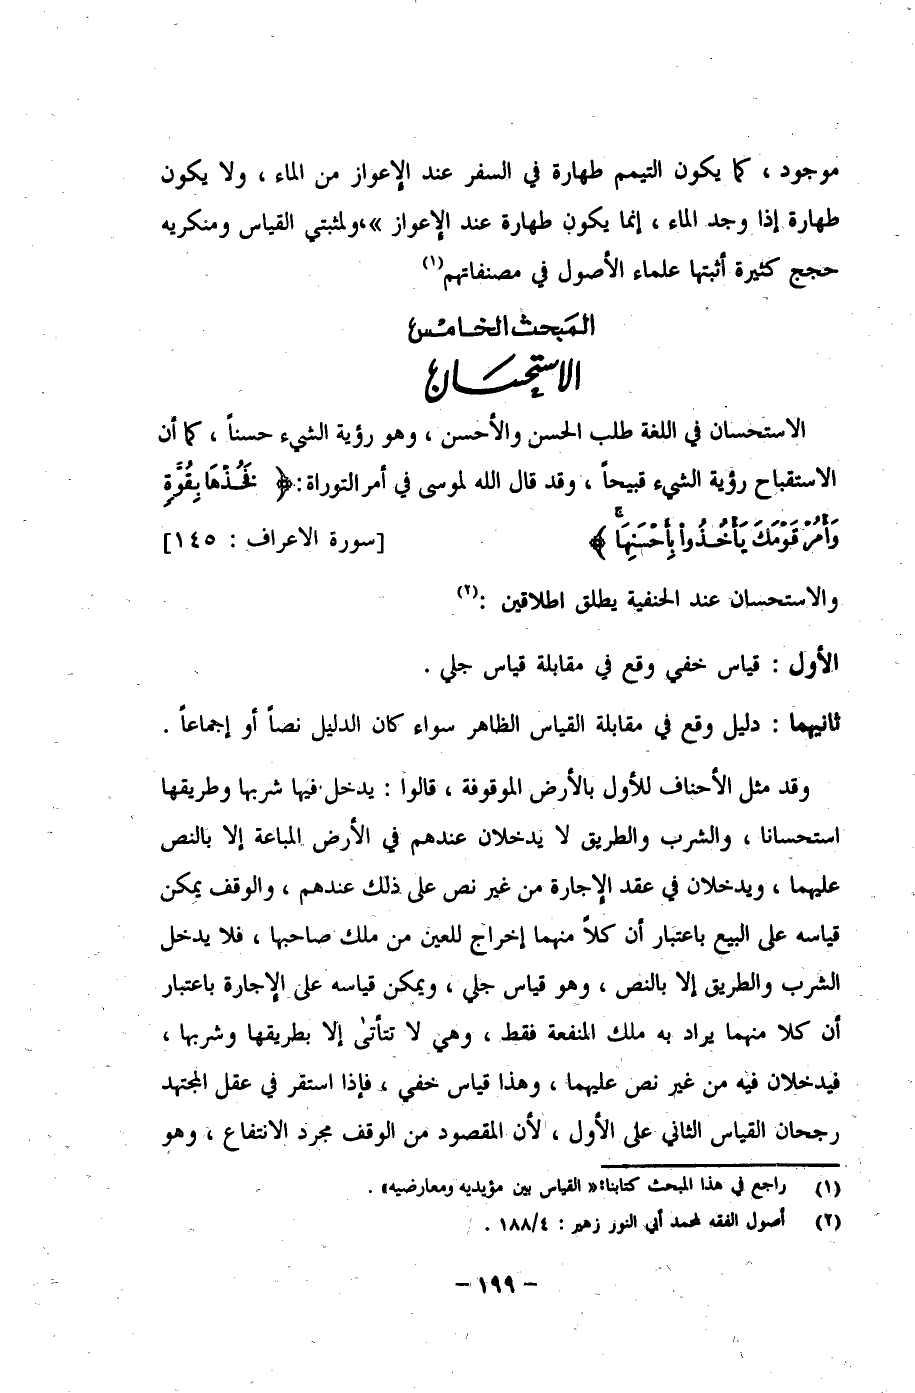 موجود ، كما يكون التيمم طهارة في السفر عند الإعواز من الماء ، ولا يكون
طهارة إذا وجد الماء ، إنما يكون طهارة عند الإعواز »،ولمثبتي القياس ومنكريه
حجج كثيرة أثبتها علماء الأصول في مصنفاتهم(١)
المبحث الخامس
الاستحسان
الاستحسان في اللغة طلب الحسن والأحسن ، وهو رؤية الشيء حسناً ، كما أن
الاستقباح رؤية الشيء قبيحاً ، وقد قال الله لموسى في أمر التوراة: ﴿ فَخُذْهَا بِقُوَّةٍ
وَأْمُرْ قَوْمَكَ يَأْخُذُوا۟ بِأَحْسَنِهَا ﴾ [سورة الاعراف : ١٤٥]
والاستحسان عند الحنفية يطلق اطلاقين :(٢)
الأول : قياس خفي وقع في مقابلة قياس جلي .
ثانيهما : دليل وقع في مقابلة القياس الظاهر سواء كان الدليل نصاً أو إجماعاً .
وقد مثل الأحناف للأول بالأرض الموقوفة ، قالوا : يدخل فيها شربها وطريقها
استحسانا ، والشرب والطريق لا يدخلان عندهم في الأرض المباعة إلا بالنص
عليهما ، ويدخلان في عقد الإجارة من غير نص على ذلك عندهم ، والوقف يمكن
قياسه على البيع باعتبار أن كلاً منهما إخراج للعين من ملك صاحبها ، فلا يدخل
الشرب والطريق إلا بالنص ، وهو قياس جلي ، ويمكن قياسه على الإجارة باعتبار
أن كلا منهما يراد به ملك المنفعة فقط ، وهي لا تتأتىٰ إلا بطريقها وشربها ،
فيدخلان فيه من غير نص عليهما ، وهذا قياس خفي ، فإذا استقر في عقل المجتهد
رجحان القياس الثاني على الأول ، لأن المقصود من الوقف مجرد الانتفاع ، وهو
(١) راجع في هذا المبحث كتابنا: « القياس بين مؤيديه ومعارضيه» .
(٢) أصول الفقه لمحمد أبي النور زهير : ١٨٨/٤ .
- ١٩٩ -